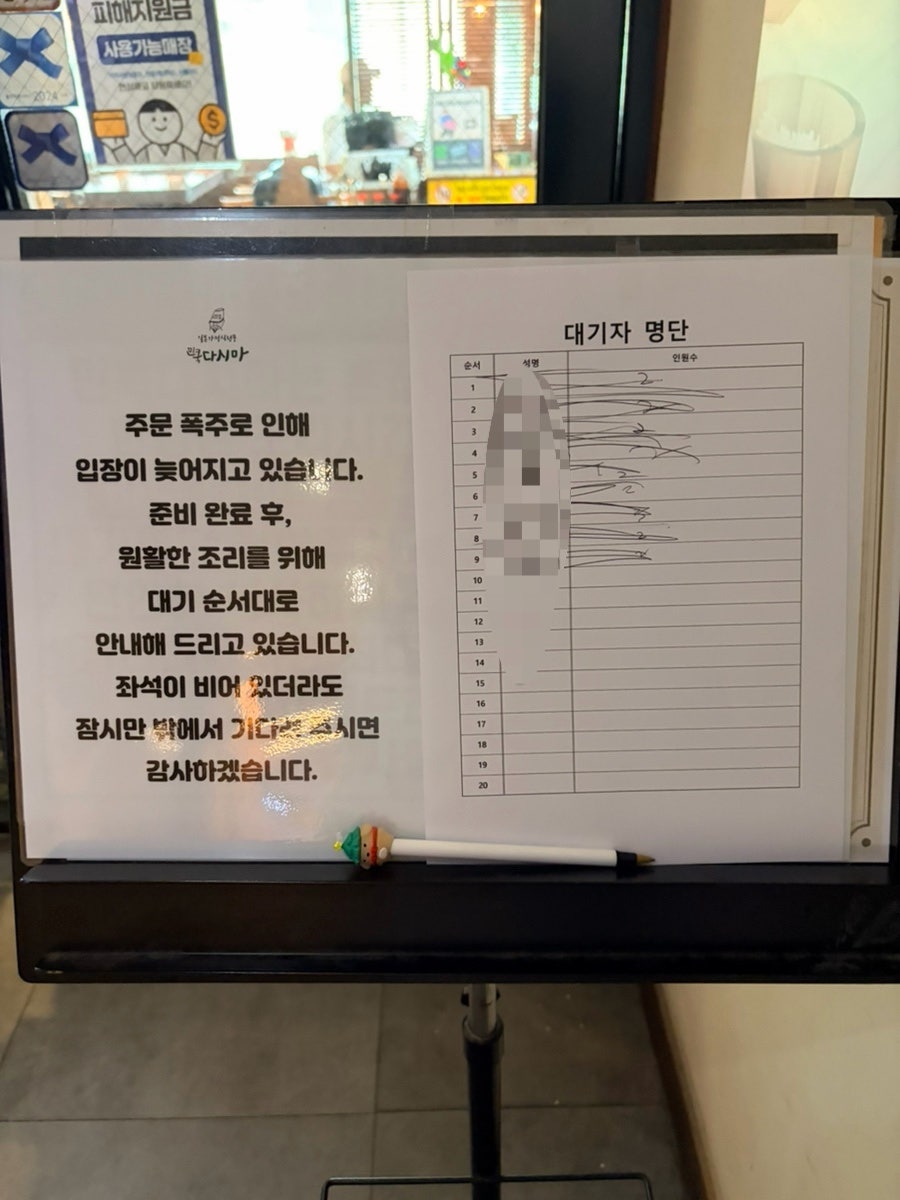 피해지원금
사용가능매장
2024
다시마
주문 폭주로 인해
입장이 늦어지고 있습니다.
준비 완료 후,
원활한 조리를 위해
대기 순서대로
안내해 드리고 있습니다.
좌석이 비어 있더라도
잠시만 밖에서 기다려 주시면
감사하겠습니다.
대기자 명단
순서 성명 인원수
1 2
2 2
3 2
4
5 2
6 2
7
8 2
9
10
11
12
13
14
15
16
17
18
19
20